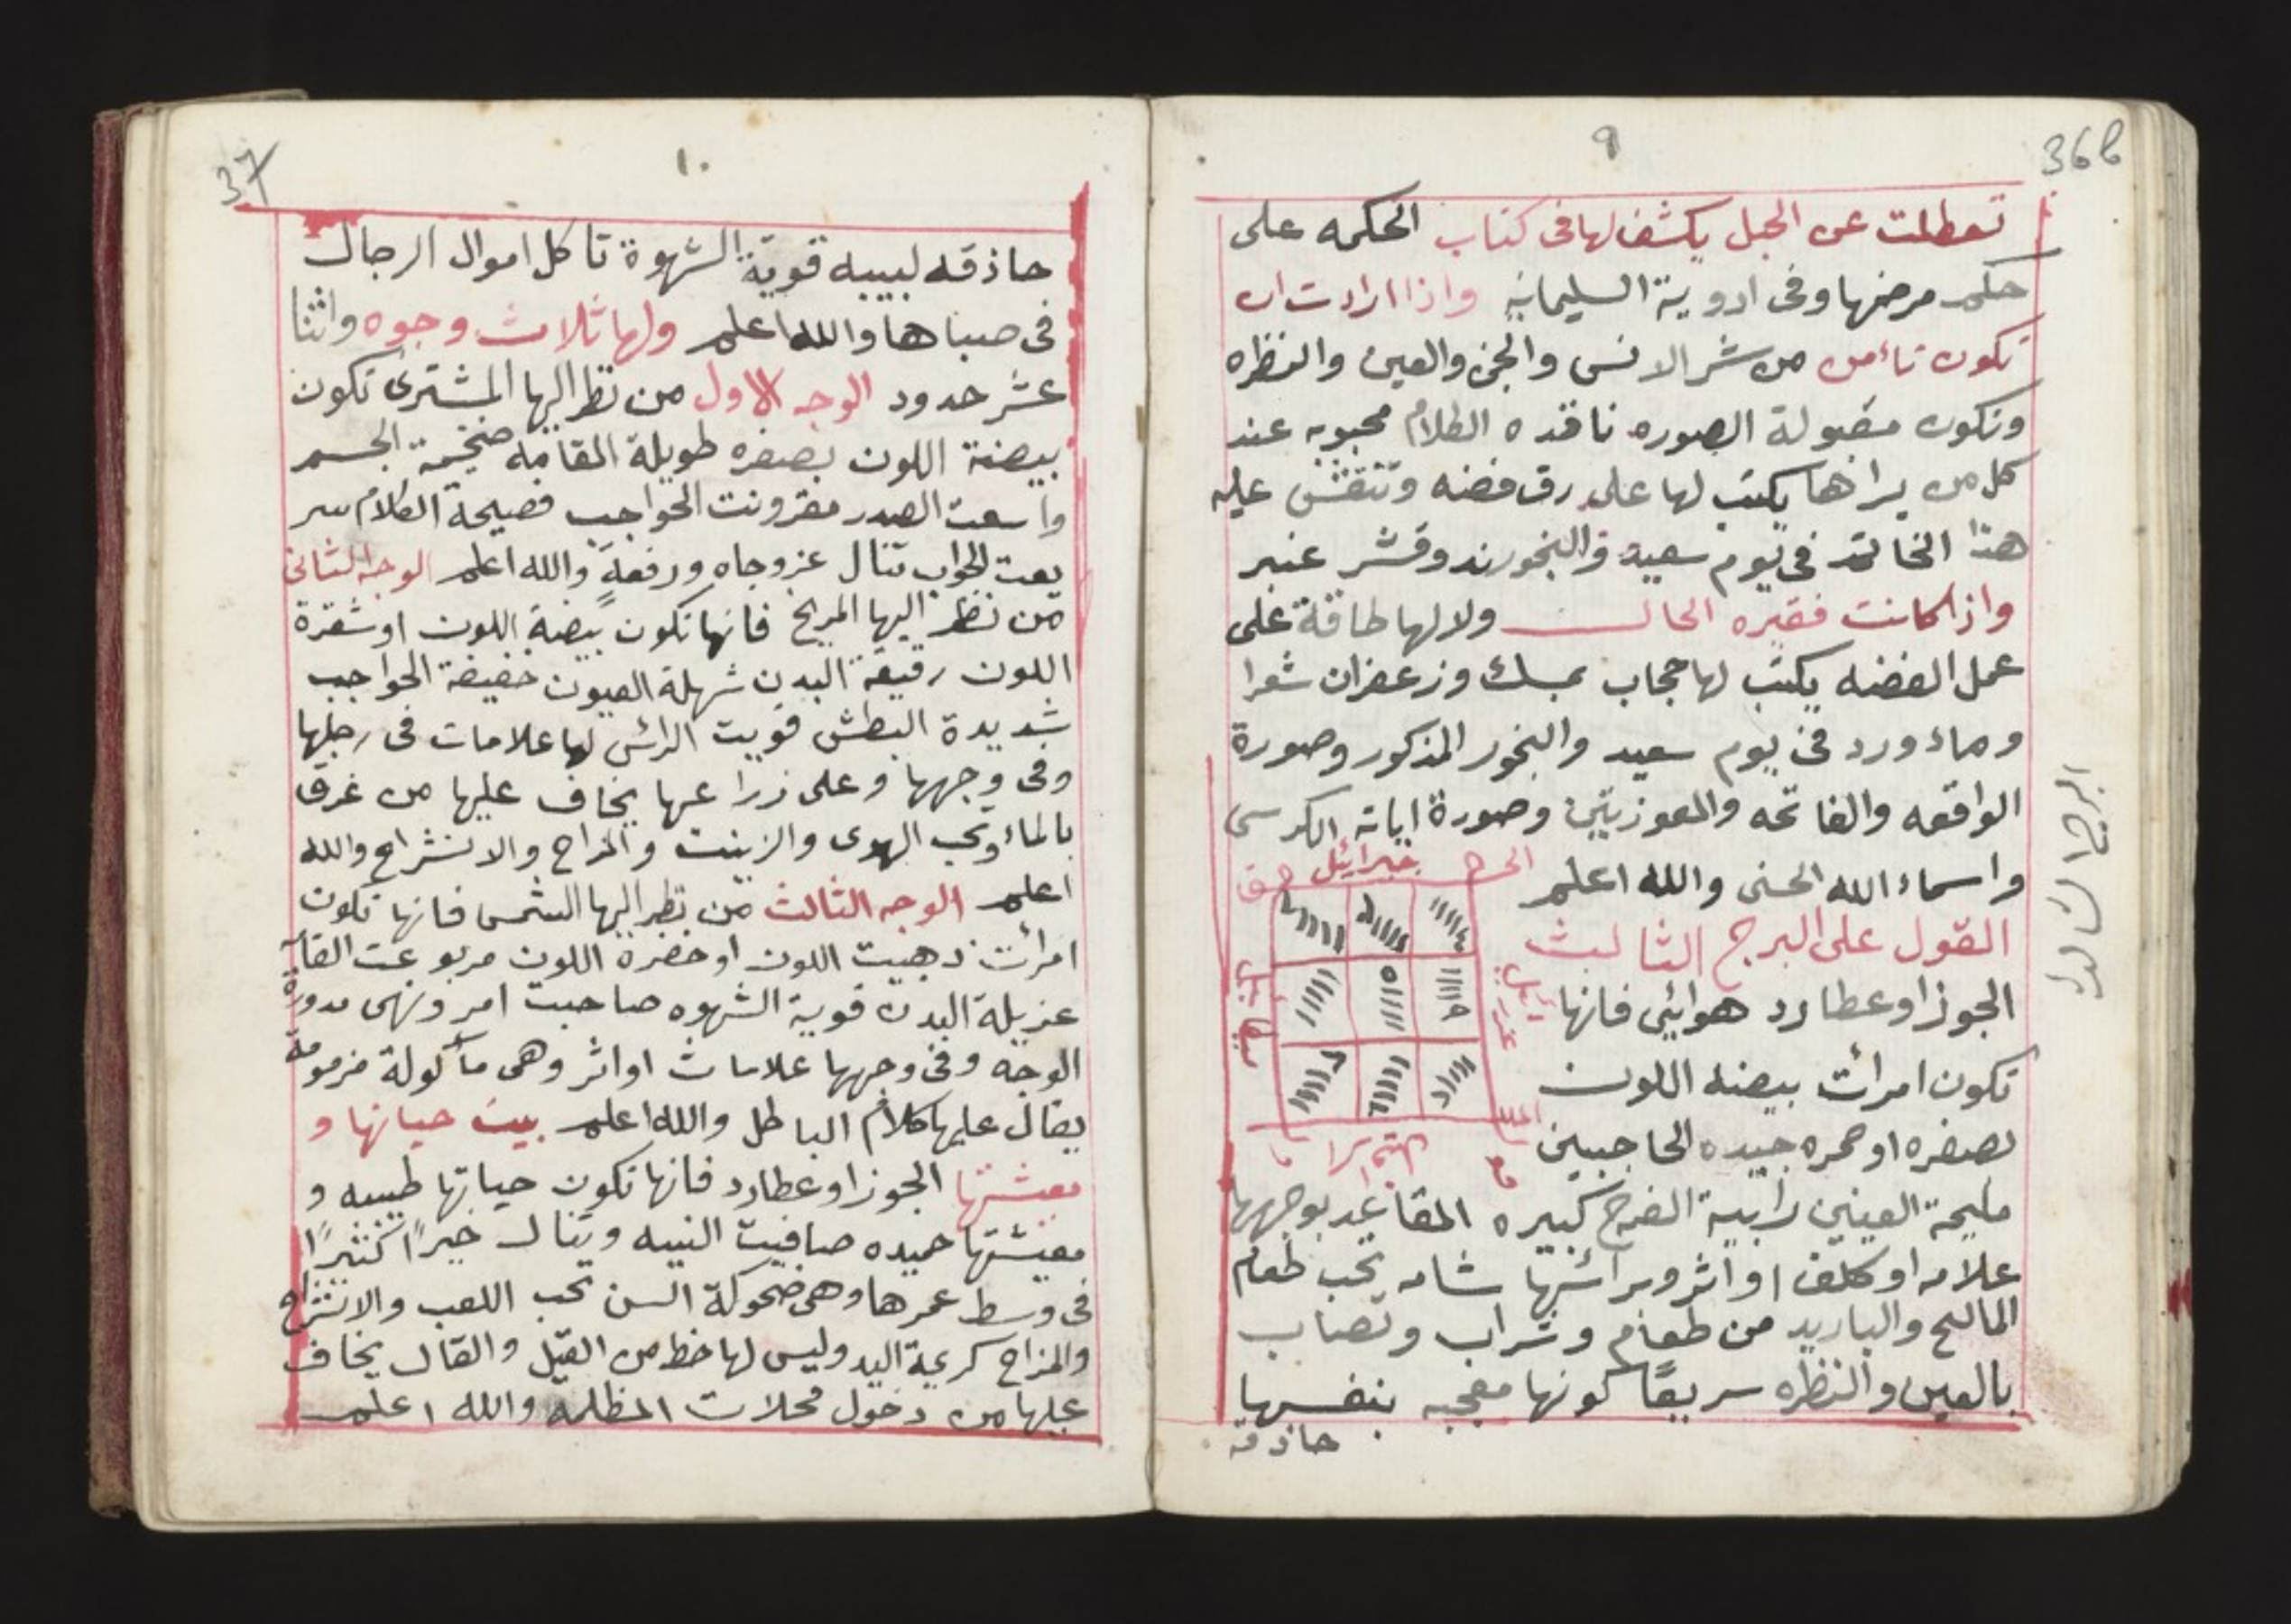 36b
٩
تعطلت عن الحبل يكشف لها فى كتاب الحكمه على
حكم مرضها وفى ادوية السليمانيه واذا ارادت ان
تكون تاءمن من شر الانس والجن والعين والنظره
وتكون مقبولة الصوره نافده الكلام محبوبه عند
كل من يراها يكتب لها على رق فضه وتنقش عليه
هذا الخاتم فى يوم سعيد والبخور ند وقشر عنبر
واذا كانت فقيره الحال ولا لها طاقة على
عمل الفضه يكتب لها حجاب بمسك وزعفران شعرا
وماء ورد فى يوم سعيد والبخور المذكور وصورة
الواقعه والفاتحه والمعوزتين وصورة اياته الكرسى
واسماء الله الحسنى والله اعلم
جبرائيل
القول على البرج الثالث
الجوزا وعطارد هوائي فانها
تكون امرائت بيضه اللون
بصفره او حمره جيده الحاجبين
مليحة العينين رابية الفرج كبيره المقاعد بوجهها
علامه او كلف او اثر وبرائسها شامه تحب طعام
المالح والباريد من طعام وشراب وتصاب
بالعين والنظره سريعًا كونها معجبه بنفسها
حاذقه
البرج الثالث
37
١٠
حاذقه لبيبه قوية الشهوة تاكل اموال الرجال
فى صباها والله اعلم ولها ثلاث وجوه واثنا
عشر حدود الوجه الاول من نظر اليها المشترى تكون
بيضة اللون بصفره طويلة القامه ضخيمة الجسم
واسعت الصدر مقرونت الحواجب فصيحة الكلام سر
يعت الجواب تنال عز وجاه ورفعة والله اعلم الوجه الثانى
من نظر اليها المريخ فانها تكون بيضة اللون او شقرة
اللون رقيقة البدن شهلة العيون خفيفة الحواجب
شديدة البطش قويت الرائس لها علامات فى رجلها
وفى وجهها وعلى زراعها يخاف عليها من غرق
بالماء وتحب الهوى والزينت والمزاح والانشراح والله
اعلم الوجه الثالث من نظر اليها الشمس فانها تكون
امرائت ذهبيت اللون او خضرة اللون مربوعت القآ
عزيلة البدن قوية الشهوه صاحبت امر ونهى مدورة
الوجه وفى وجهها علامات او اثر وهى مآكولة مزمومة
يقال عليها كلام الباطل والله اعلم بيت حياتها و
معشتها الجوزا وعطارد فانها تكون حياتها طيبه و
معيشتها حميده صافيت النيه وتنال خيرًا كثيرًا
فى وسط عمرها وهى ضحوكة السن تحب اللعب والانشراح
والمزاح كريمة اليد وليس لها حظ من القيل والقال يخاف
عليها من دخول محلات المظلمه والله اعلم